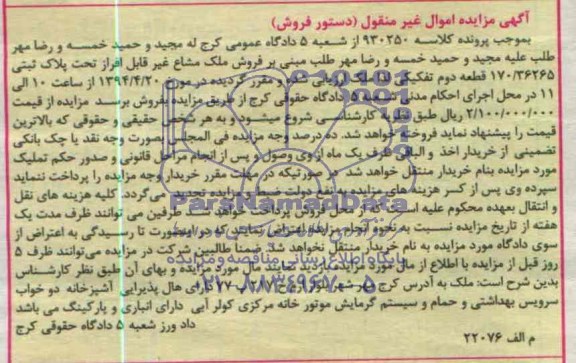 آگهی مزایده اموال غیر منقول (دستور فروش)
بموجب پرونده کلاسه ۹۳۰۲۵۰ از شعبه ۵ دادگاه عمومی کرج له مجید و حمید خمسه و رضا مهر
طلب علیه مجید و حمید خمسه و رضا مهر طلب مبنی بر فروش ملک مشاع غیر قابل افراز تحت پلاک ثبتی
۱۷۰/۳۶۲۶۵ قطعه دوم تفکیکی ارزیابی شده و مقرر گردیده در مورخ ۱۳۹۴/۴/۲۰ از ساعت ۱۰ الی
۱۱ در محل اجرای احکام مدنی شعبه ۵ دادگاه حقوقی کرج از طریق مزایده بفروش برسد مزایده از قیمت
۲/۱۰۰/۰۰۰/۰۰۰ ریال طبق نظریه کارشناسی شروع میشود و به هر شخص حقیقی و حقوقی که بالاترین
قیمت را پیشنهاد نماید فروخته خواهد شد. ده درصد وجه مزایده فی المجلس بصورت وجه نقد یا چک بانکی
تضمینی از خریدار اخذ و الباقی ظرف یک ماه از وی وصول و پس از انجام مراحل قانونی و صدور حکم تملیک
مورد مزایده بنام خریدار منتقل خواهد شد. در صورتیکه در مهلت مقرر خریدار وجه مزایده را پرداخت ننماید
سپرده وی پس از کسر هزینه های مزایده به نفع دولت ضبط و مزایده تجدید می گردد. کلیه هزینه های نقل
و انتقال بعهده محکوم علیه است که از محل فروش پرداخت خواهد شد. طرفین می توانند ظرف مدت یک
هفته از تاریخ مزایده نسبت به نحوه انجام مزایده اعتراض نمایند که در اینصورت تا رسیدگی به اعتراض از
سوی دادگاه مورد مزایده به نام خریدار منتقل نخواهد شد. ضمنا طالبین شرکت در مزایده می‌توانند ظرف ۵
روز قبل از مزایده با اطلاع از مال مورد مزایده بازدید نمایند مال مورد مزایده و بهای آن طبق نظر کارشناس
بدین شرح است: ملک به آدرس کرج دارای هال پذیرایی آشپزخانه دو خواب
سرویس بهداشتی و حمام و سیستم گرمایش موتور خانه مرکزی کولر آبی دارای انباری و پارکینگ می باشد
داد ورز شعبه ۵ دادگاه حقوقی کرج
م الف ۲۲۰۷۶
ParsNamadData
پایگاه اطلاع رسانی مناقصه و مزایده
۰۲۱-۸۸۳۴۹۶۷۰-۵